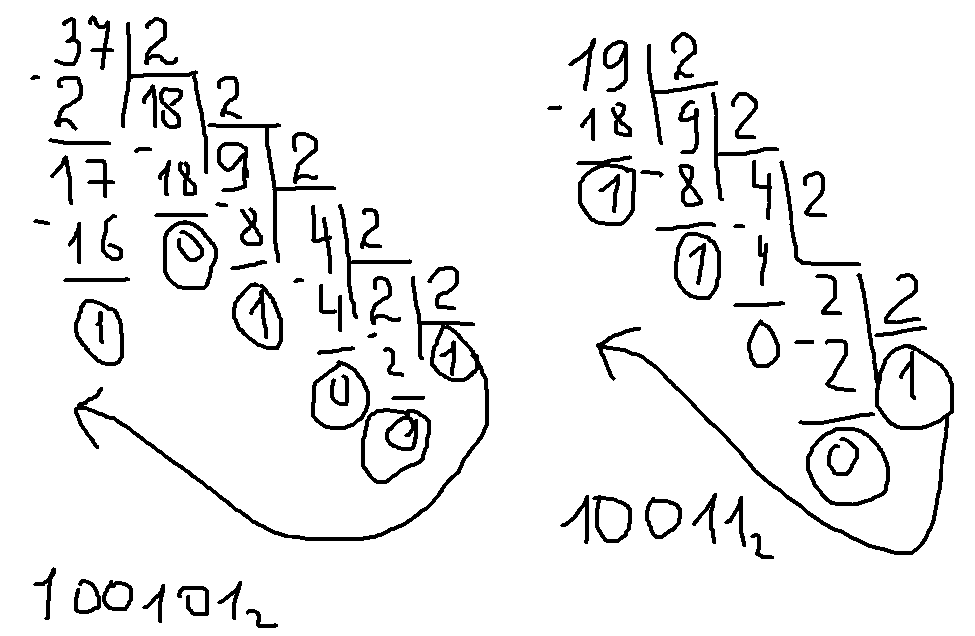 37 2
- 2 18 2
17 - 18 9 2
- 16 0 - 8 4 2
1 1 - 4 2 2
0 - 2 1
0
100101₂
19 2
- 18 9 2
1 - 8 4 2
1 - 4 2 2
0 - 2 1
0
10011₂